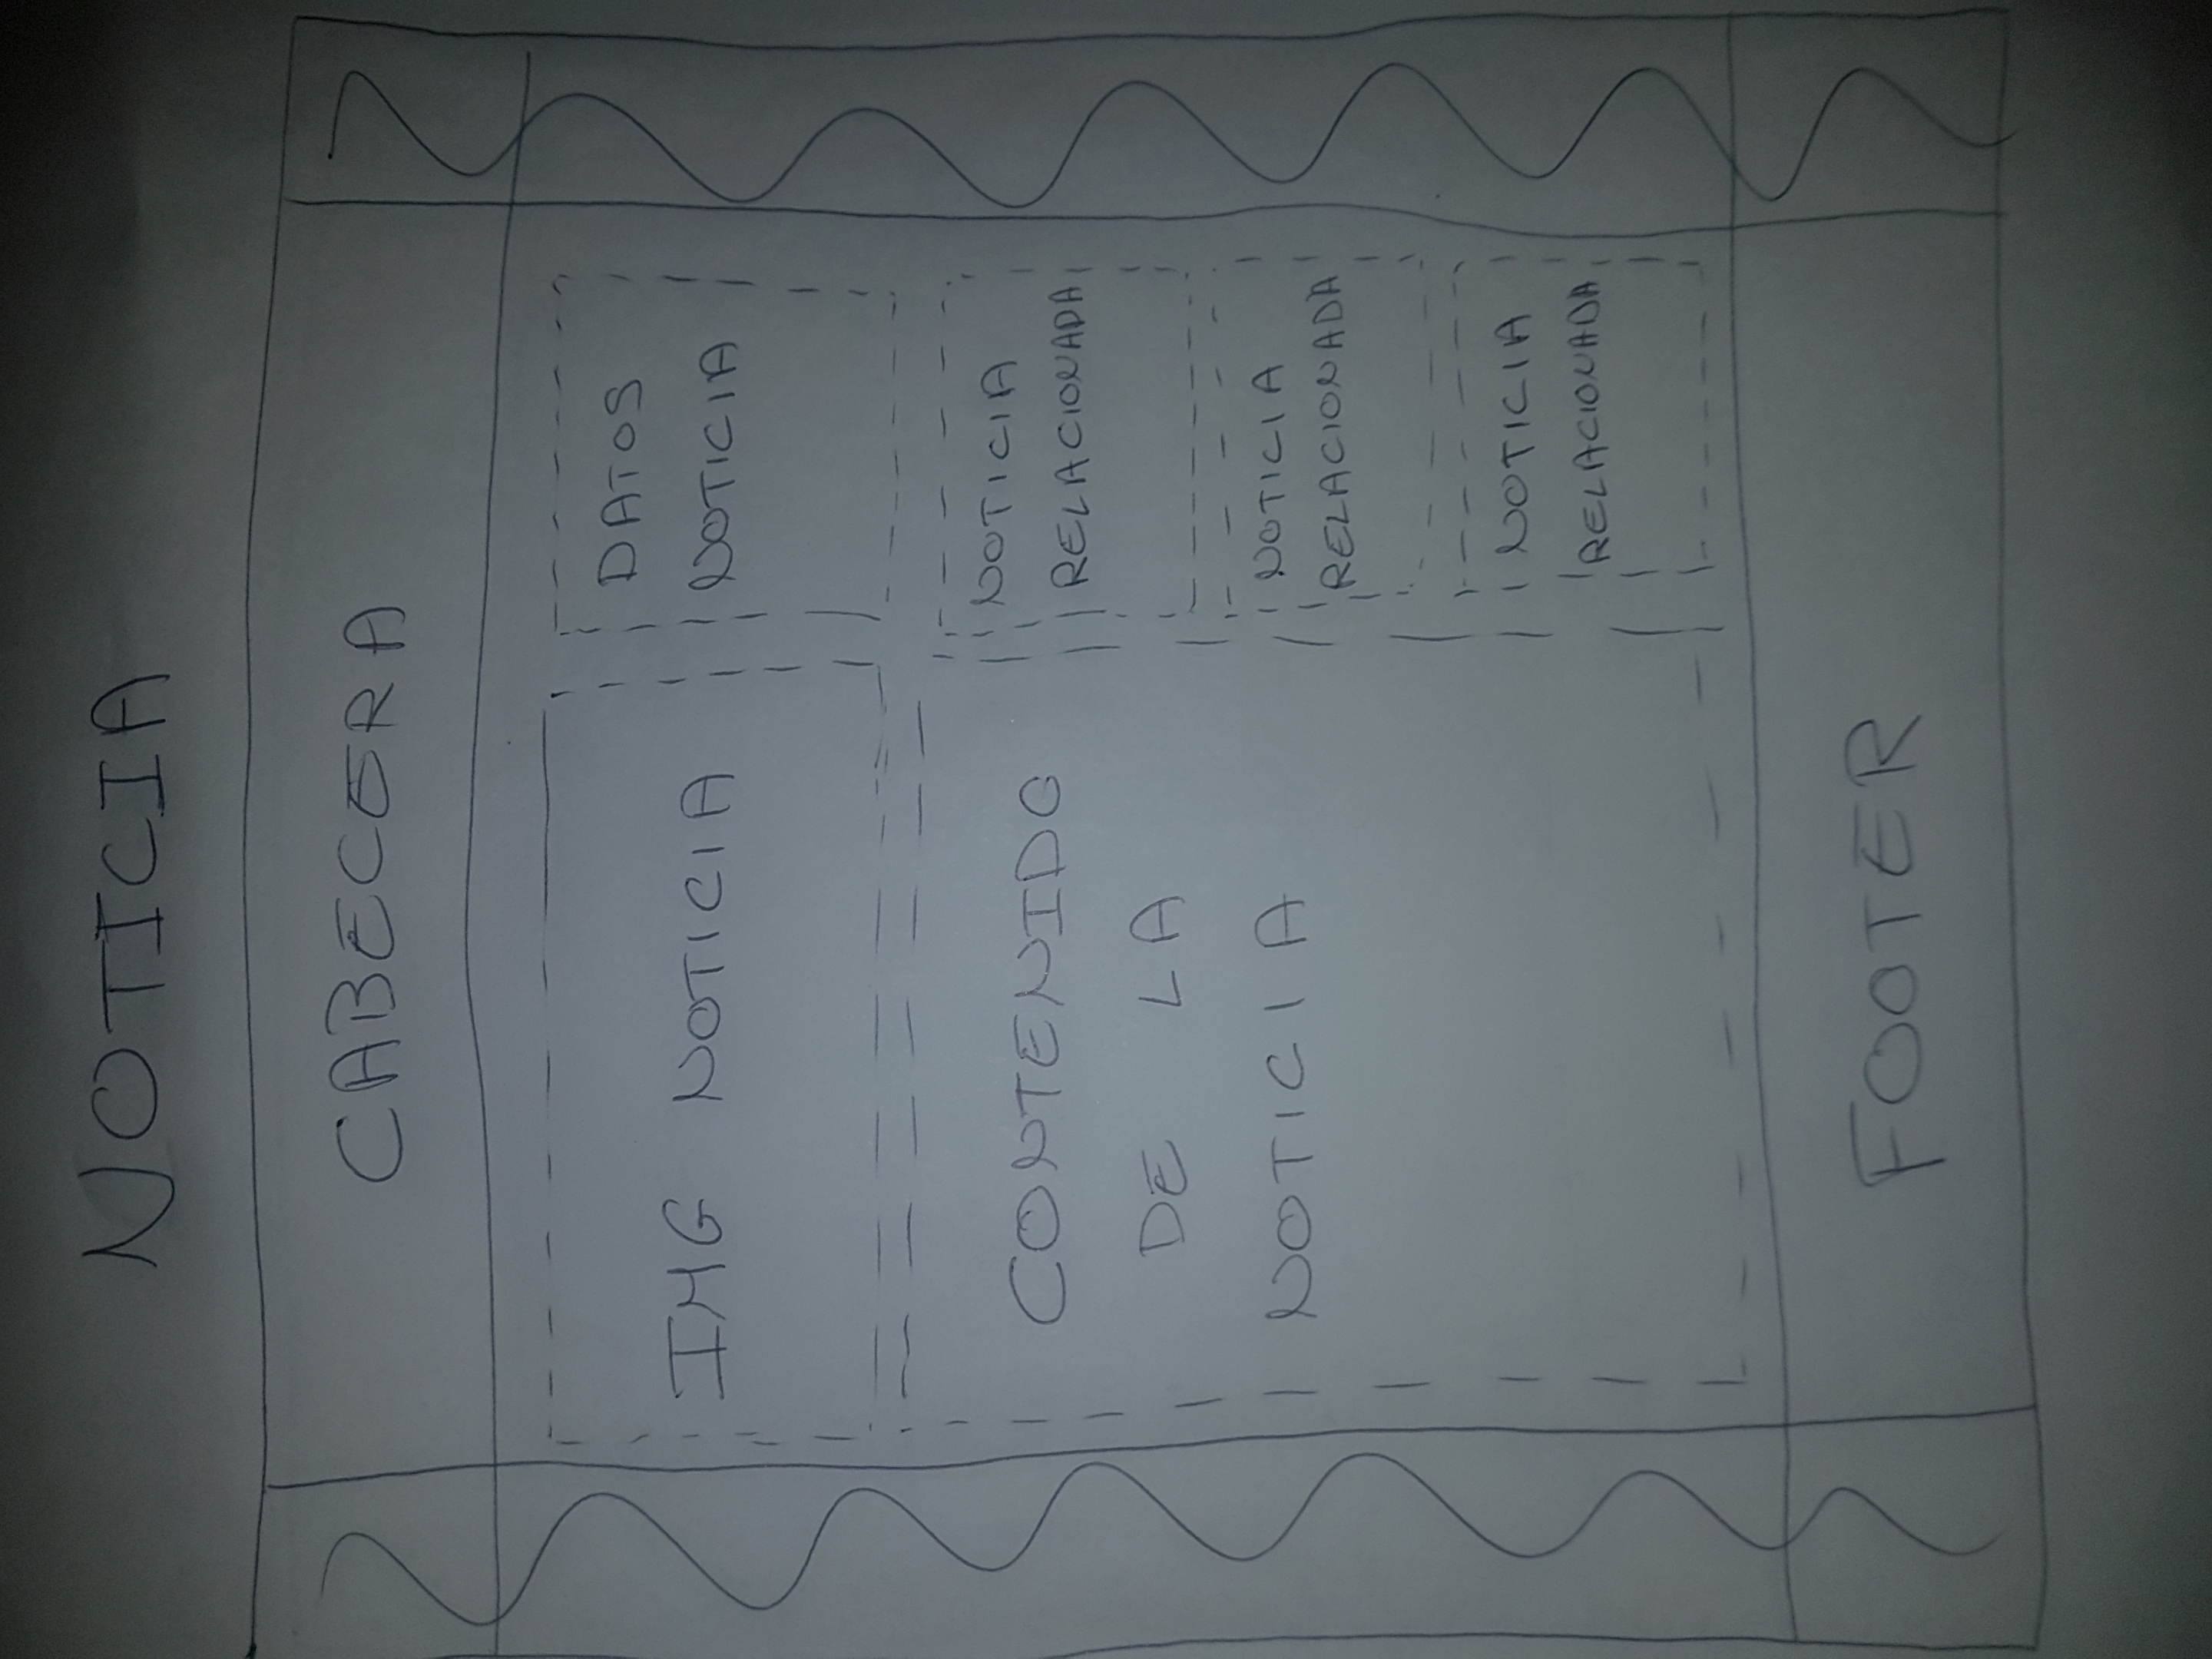 NOTICIA
CABECERA
IMG NOTICIA
DATOS
NOTICIA
CONTENIDO
DE LA
NOTICIA
NOTICIA
RELACIONADA
NOTICIA
RELACIONADA
NOTICIA
RELACIONADA
FOOTER